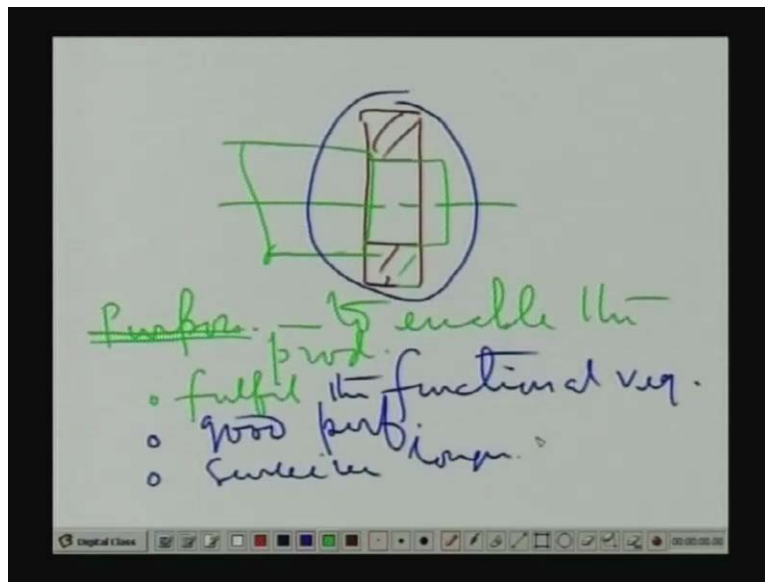 Purpose. to enable the
prod.
• fulfil the functional req.
• good perf.
• service longer.
Digital Class 00:00:00.00